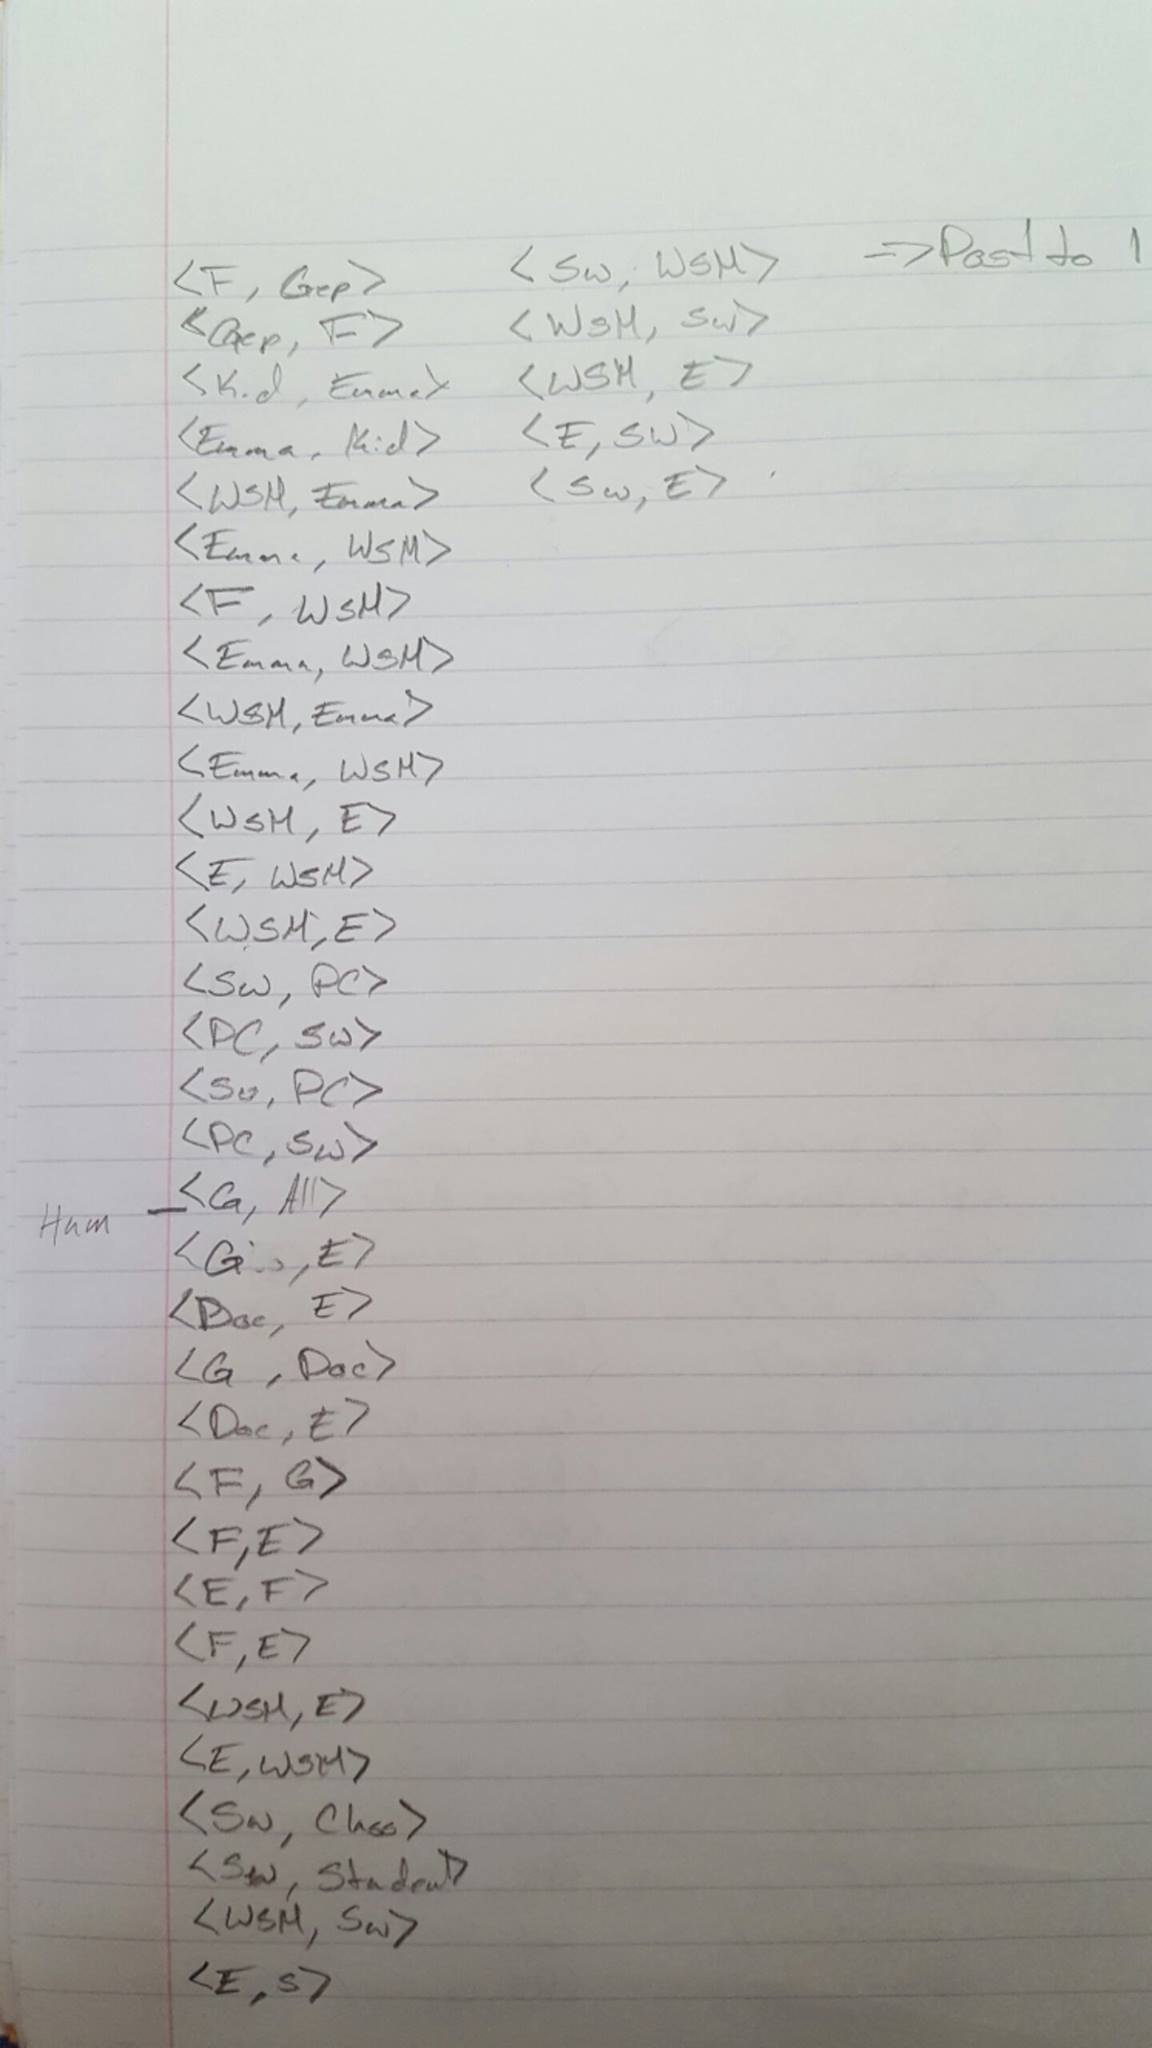 <F, Gep>
<Gep, F>
<Kid, Emma>
<Emma, Kid>
<WSM, Emma>
<Emma, WSM>
<F, WSM>
<Emma, WSM>
<WSM, Emma>
<Emma, WSM>
<WSM, E>
<E, WSM>
<WSM, E>
<Sw, PC>
<PC, Sw>
<Sw, PC>
<PC, Sw>
Hum - <G, All>
<, E>
<Doc, E>
<G , Doc>
<Doc, E>
<F, G>
<F, E>
<E, F>
<F, E>
<WSM, E>
<E, WSM>
<Sw, Class>
<Sw, Student>
<WSM, Sw>
<E, S>
<Sw, WSM> => Past to 1
<WSM, Sw>
<WSM, E>
<E, SW>
<Sw, E>